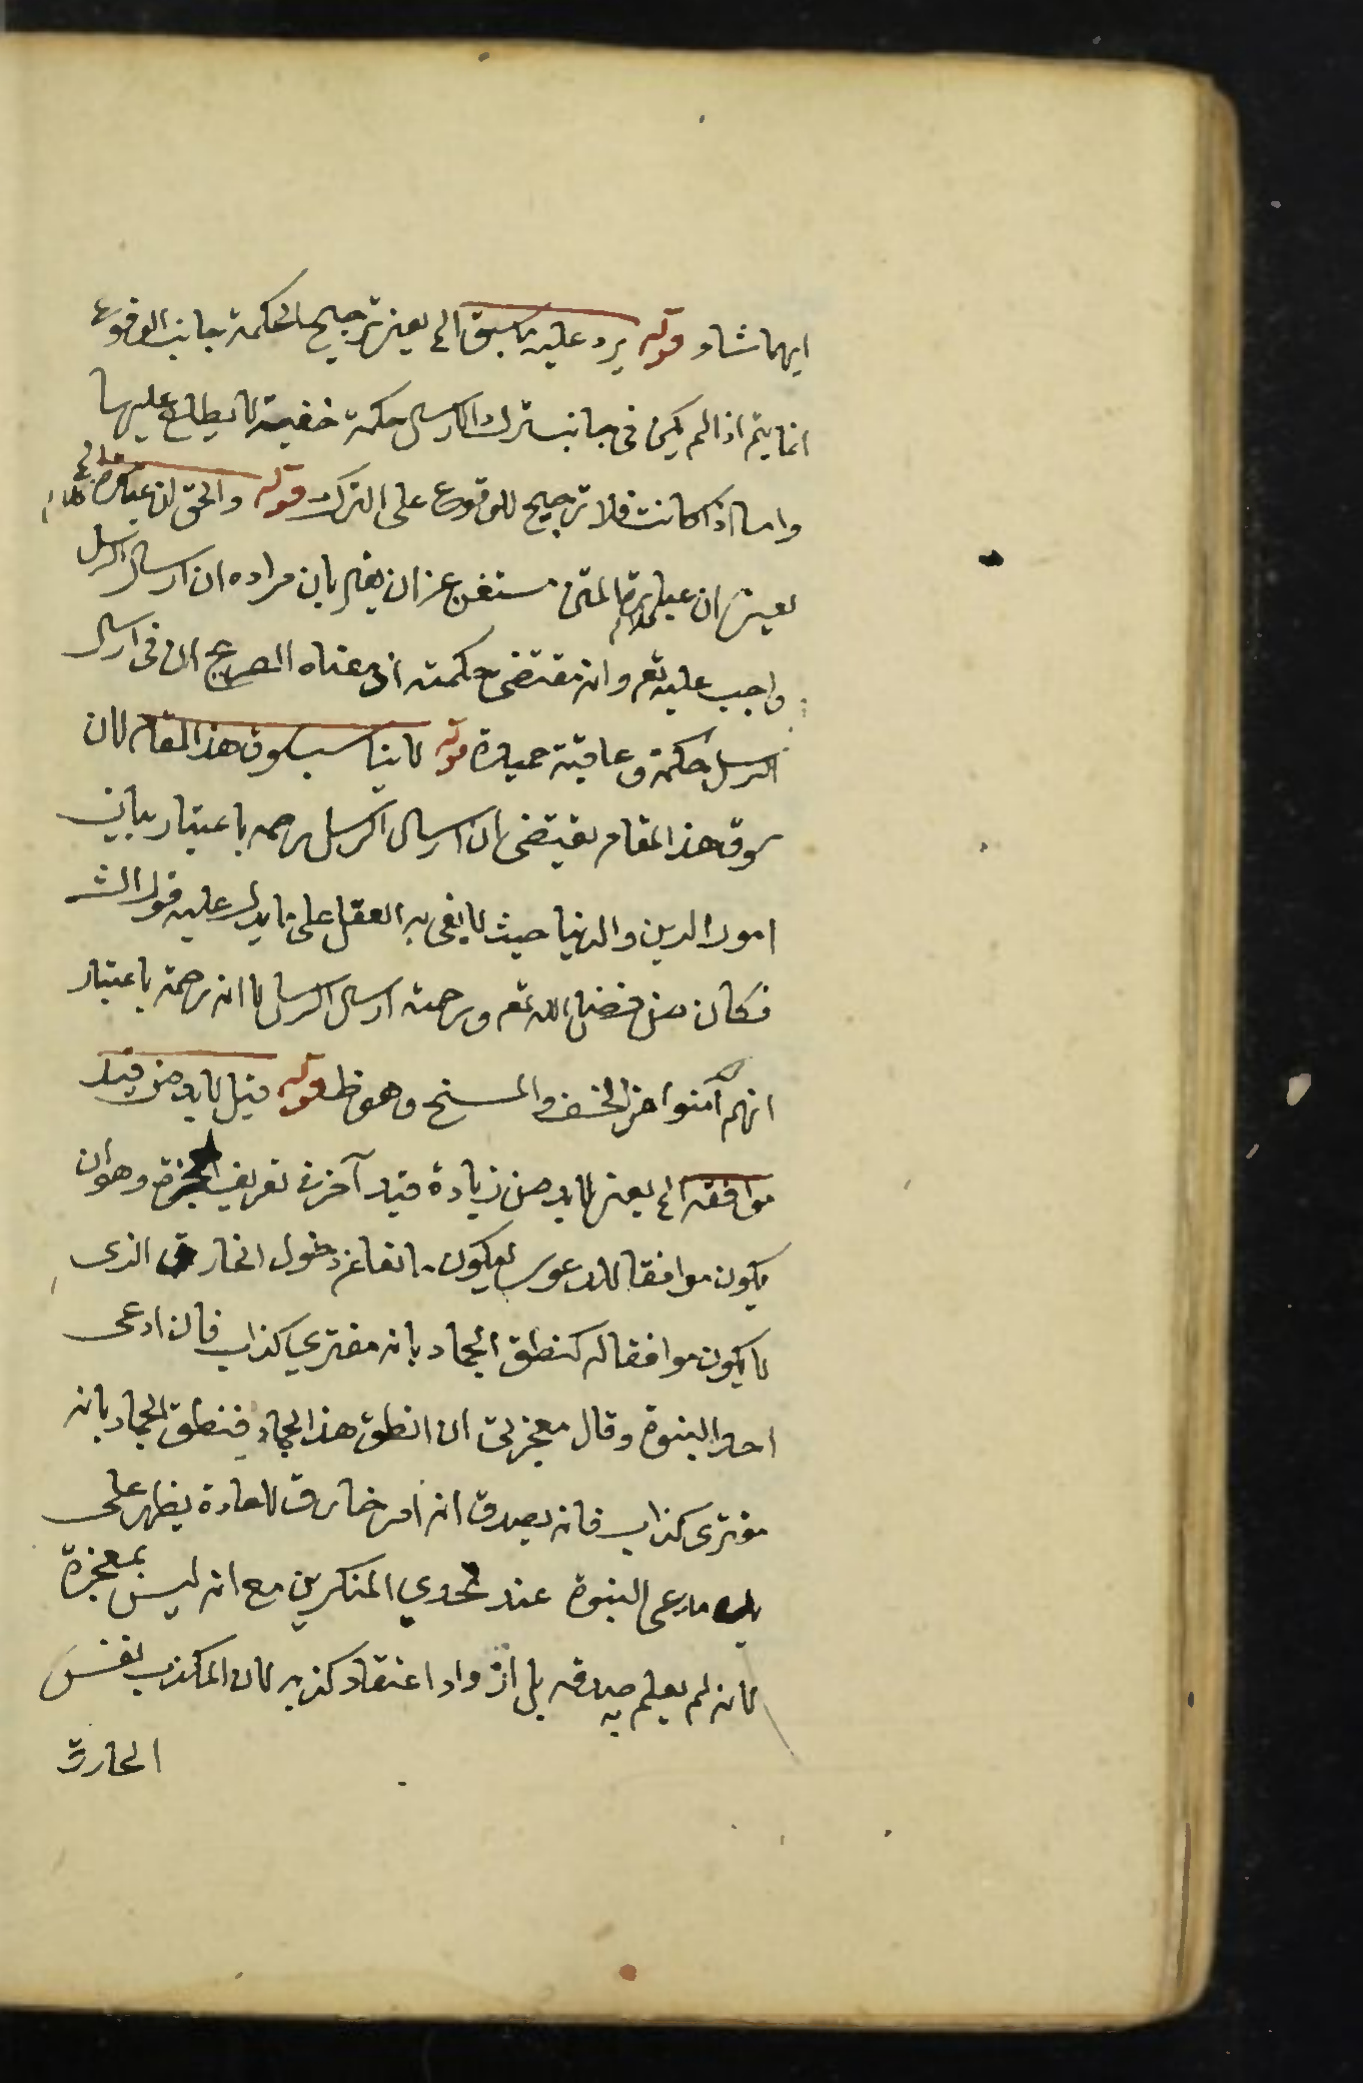 ايهما شاء قوله يرد عليه ما سبق الخ يعني ترجيح الحكمة جانب الوقوع
انما يتم اذا لم يكن في جانب ترك الارسال حكمة خفية لا يطلع عليها
واما اذا كانت فلا ترجيح للوقوع على الترك قوله والحق ان عبارة
يعني ان عبارة المتن مستغن عن ان يقال بان مراده ان ارسال الرسل
واجب عليه تعم وانه مقتضى حكمته اذ معناه الصريح ان في ارسال
الرسل حكمة وعاقبة حميدة قوله لا يناسب سوق هذا المقام لان
سوق هذا المقام يقتضى ان ارسال الرسل رحمه باعتبار بيان
امور الدين والدنيا حيث لا يفى به العقل على ما يدل عليه قول الش
فكان من فضل الله تعم ورحمته ارسال الرسل لا انه رحمة باعتبار
انهم آمنوا من الخسف والمسخ وهو ظ قوله قيل لا بد من قيد
موافقه الخ يعني لا بد من زيادة قيد آخر في تعريف المعجزة وهو ان
يكون موافقا للدعوى ليكون مانعا عن دخول الخارق الذى
لا يكون موافقا له كنطق الجماد بانه مفتري كذاب فان ادعى
احد النبوة وقال معجزتى ان انطق هذا الجماد فنطق الجماد بانه
مفترى كذاب فانه يصدق انه امر خارق للعادة يظهر على
يد مدعى النبوة عند تحدي المنكرين مع انه ليس بمعجزة
لانه لم يعلم به صدقه بل ازداد اعتقاد كذبه لان المكذب نفس
الخارق